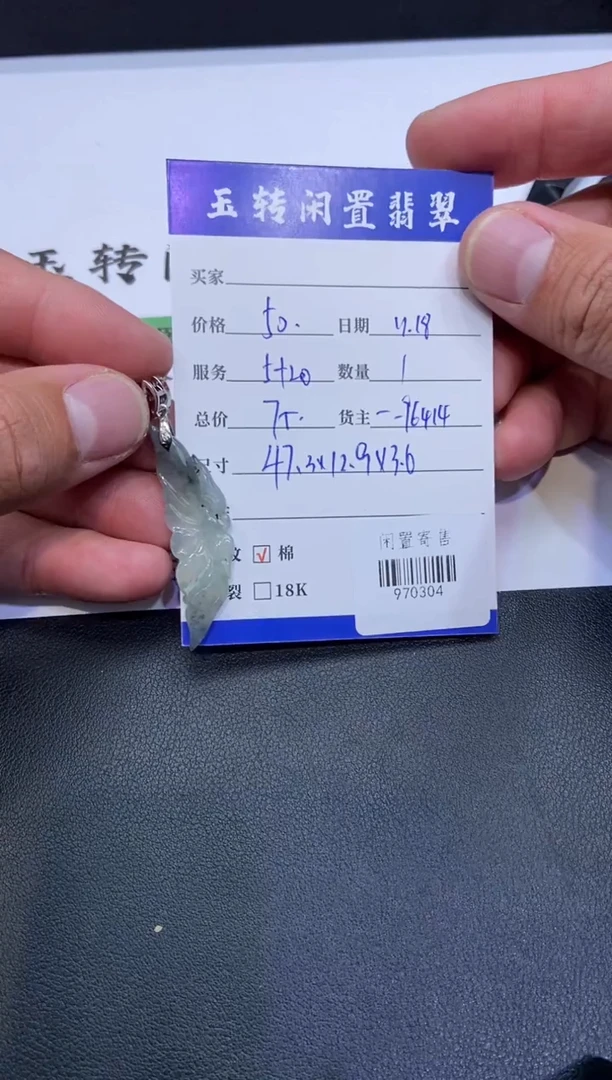 玉转闲置翡翠
玉转
买家
价格 50. 日期 11.18
服务 5+20 数量 1
总价 75. 货主 --96414
尺寸 47.3x12.9x3.6
纹 ☑ 棉
裂 □ 18K
闲置寄售
970304